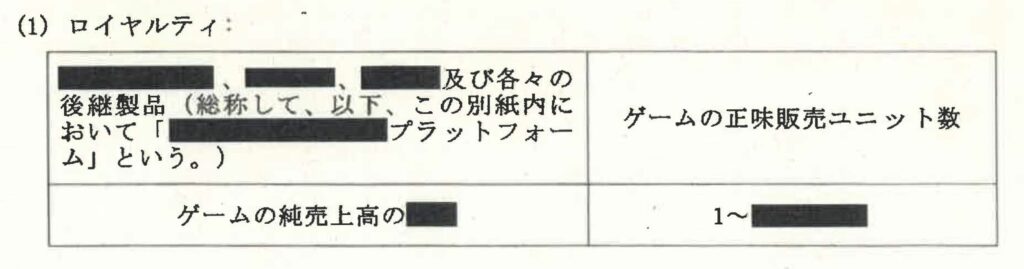 (1) ロイヤルティ:
、 、 及び各々の
後継製品(総称して、以下、この別紙内に
おいて「 プラットフォー
ム」という。)
ゲームの正味販売ユニット数
ゲームの純売上高の
1~